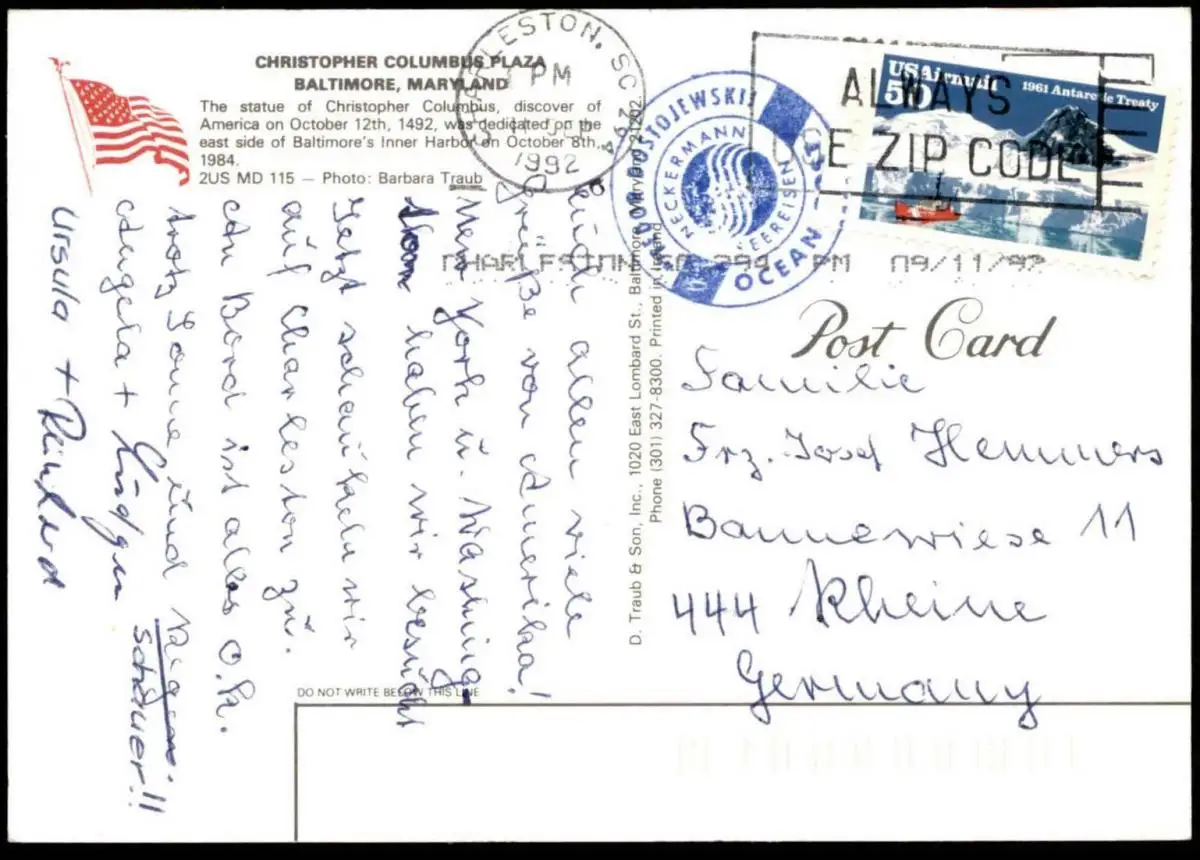 CHRISTOPHER COLUMBUS PLAZA
BALTIMORE, MARYLAND
The statue of Christopher Columbus, discover of
America on October 12th, 1492, was dedicated on the
east side of Baltimore's Inner Harbor on October 8th,
1984.
2US MD 115 — Photo: Barbara Traub
CHARLESTON, SC 294
PM
SEP
1992
ALWAYS
USE ZIP CODE
USAirmail
50
1961 Antarctic Treaty
DOSTOJEWSKIJ
NECKERMANN
SEEREISEN
OCEAN
CHARLESTON SC 294 PM 09/11/92
Post Card
Euch allen viele
Grüße von Amerika!
New York u. Washing-
ton haben wir besucht
Jetzt schaukeln wir
auf Charleston zu.
An Bord ist alles o.k.
trotz Sonne und Regen-
schauer!!
Angela + Rüdger
Ursula + Reinhard
D. Traub & Son, Inc., 1020 East Lombard St., Baltimore, Maryland 21202.
Phone (301) 327-8300. Printed in Ireland
Familie
Frz. Josef Hemmers
Bannewiese 11
444 Rheine
Germany
DO NOT WRITE BELOW THIS LINE